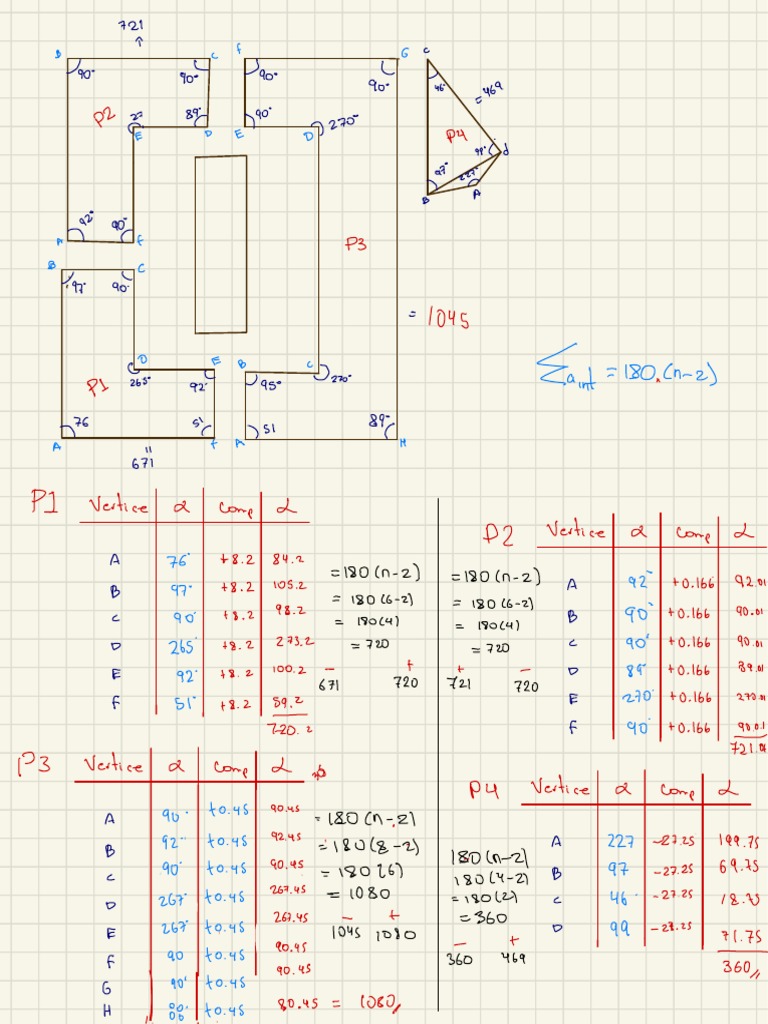 721
B C F G C
90° 90° 90° 90° 46°
= 469
P2 89° 90° 270° P4
E D E D 99° d
97° 227°
92° 90° B A
A F P3
B C
97° 90°
= 1045
D E B C
265° 92° 95° 270°
P1
Σa int = 180.(n-2)
76 51 51 89°
A F A H
671
P1 Vertice α Comp α
A 76° +8.2 84.2
B 97° +8.2 105.2
C 90° +8.2 98.2
D 265° +8.2 273.2
E 92° +8.2 100.2
F 51° +8.2 59.2
720.2
=180(n-2)
= 180(6-2)
= 180(4)
= 720
- +
671 720
P2 Vertice α Comp α
A 92° +0.166 92.01
B 90° +0.166 90.01
C 90° +0.166 90.01
D 89° +0.166 89.01
E 270° +0.166 270.01
F 90° +0.166 90.01
721.0
=180(n-2)
= 180(6-2)
= 180(4)
= 720
+ -
721 720
P3 Vertice α Comp α
A 90° +0.45 90.45
B 92° +0.45 92.45
C 90° +0.45 90.45
D 267° +0.45 267.45
E 267° +0.45 267.45
F 90 +0.45 90.45
G 90° +0.45 90.45
H +0.45 80.45 = 1080
= 180(n-2)
= 180(8-2)
= 180(6)
= 1080
- +
1045 1080
P4 Vertice α Comp α
A 227 -27.25 199.75
B 97 -27.25 69.75
C 46° -27.25 18.75
D 99 -27.25 71.75
360
180(n-2)
180(4-2)
= 180(2)
= 360
- +
360 469